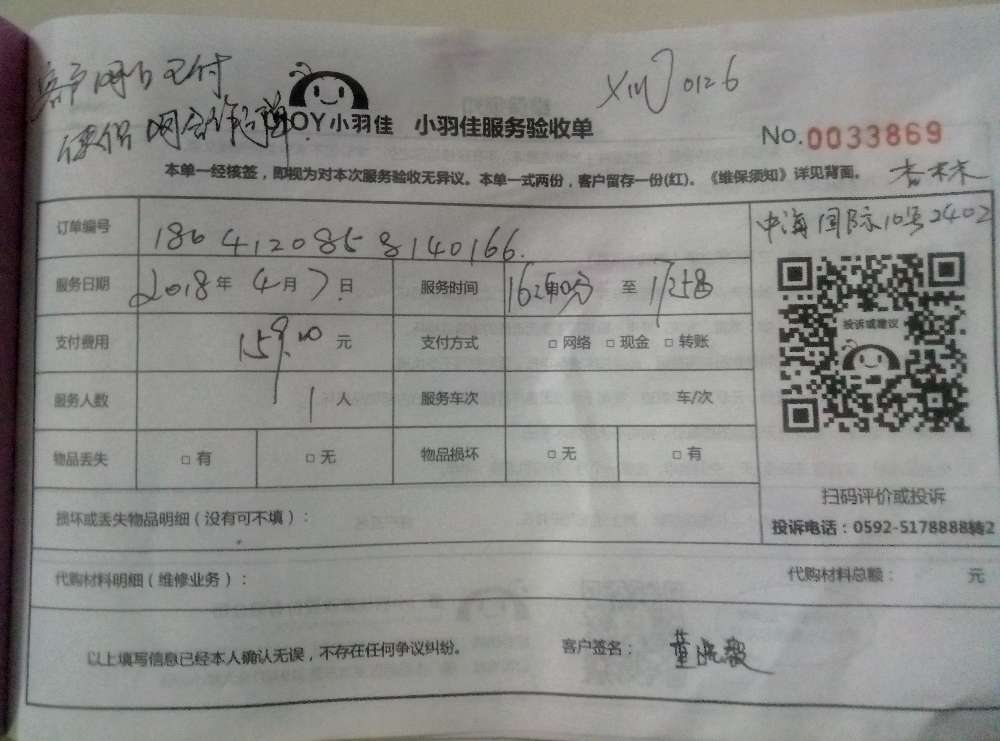 客户网上已付
XMJ 0126
JOY小羽佳 小羽佳服务验收单
No.0033869
本单一经核签，即视为对本次服务验收无异议。本单一式两份，客户留存一份(红)。《维保须知》详见背面。
杏林
中海国际10号2402
订单编号 1804120858140166
服务日期 2018年4月7日 服务时间 至
支付费用 159.00元 支付方式 □网络 □现金 □转账
服务人数 1人 服务车次 车/次
物品丢失 □有 □无 物品损坏 □无 □有
投诉或建议
扫码评价或投诉
投诉电话：0592-5178888转2
损坏或丢失物品明细（没有可不填）：
代购材料明细（维修业务）： 代购材料总额： 元
以上填写信息已经本人确认无误，不存在任何争议纠纷。 客户签名：